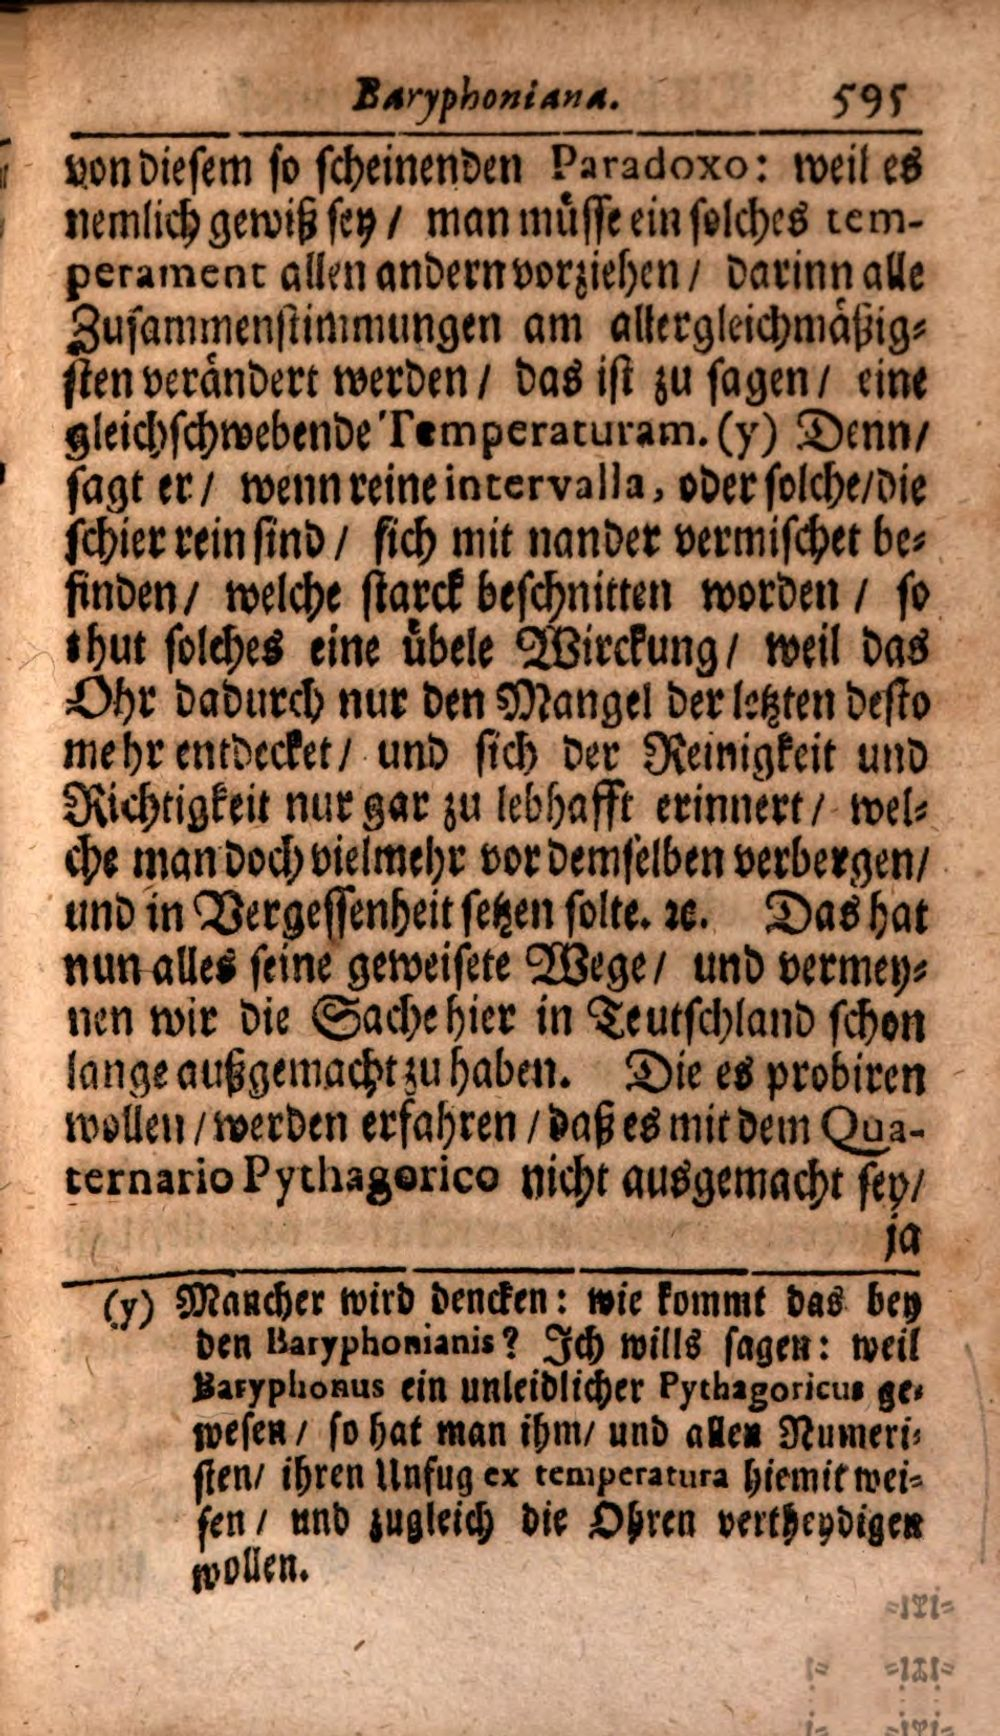 Baryphoniana. 595
von diesem so scheinenden Paradoxo: weil es
nemlich gewiß sey / man müsse ein solches tem-
perament allen andern vorziehen / darinn alle
Zusammenstimmungen am allergleichmäßig-
sten verändert werden / das ist zu sagen / eine
gleichschwebende Temperaturam. (y) Denn /
sagt er / wenn reine intervalla, oder solche / die
schier rein sind / sich mit nander vermischet be-
finden / welche starck beschnitten worden / so
thut solches eine übele Wirckung / weil das
Ohr dadurch nur den Mangel der letzten desto
mehr entdecket / und sich der Reinigkeit und
Richtigkeit nur gar zu lebhafft erinnert / wel-
che man doch vielmehr vor demselben verbergen /
und in Vergessenheit setzen solte. ꝛc. Das hat
nun alles seine geweisete Wege / und vermey-
nen wir die Sache hier in Teutschland schon
lange außgemacht zu haben. Die es probiren
wollen / werden erfahren / daß es mit dem Qua-
ternario Pythagorico nicht ausgemacht sey /
ja
(y) Mancher wird dencken: wie kommt das bey
den Baryphonianis? Ich wills sagen: weil
Baryphonus ein unleidlicher Pythagoricus ge-
wesen / so hat man ihm / und allen Numeri-
sten / ihren Unfug ex temperatura hiemit wei-
sen / und zugleich die Ohren vertheydigen
wollen.